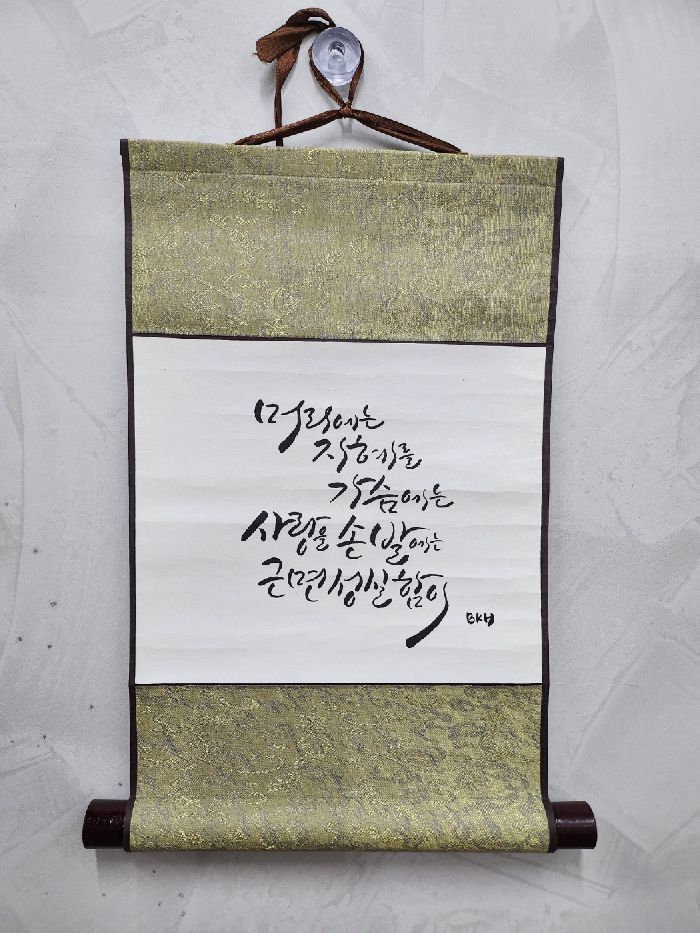 머리에는
지혜를
가슴에는
사랑을 손발에는
근면성실함이